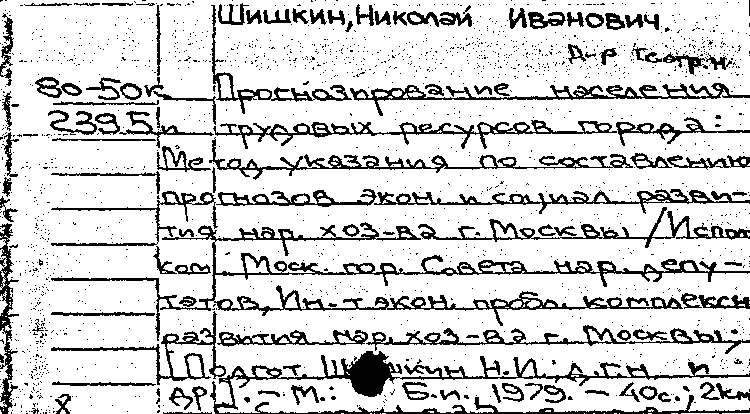 Шишкин, Николай Иванович.
д-р геогр. н.
80-50к Прогнозирование населения
2395 и трудовых ресурсов города:
Метод. указания по составлению
прогнозов экон. и социал. разви-
тия нар. хоз-ва г. Москвы / Испол
ком. Моск. гор. Совета нар. депу-
татов, Ин-т экон. пробл. комплексн
развития нар. хоз-ва г. Москвы;
[Подгот. Шишкин Н.И., д.г.н. и
др.]. - М.: Б.и., 1979. - 40с.; 2